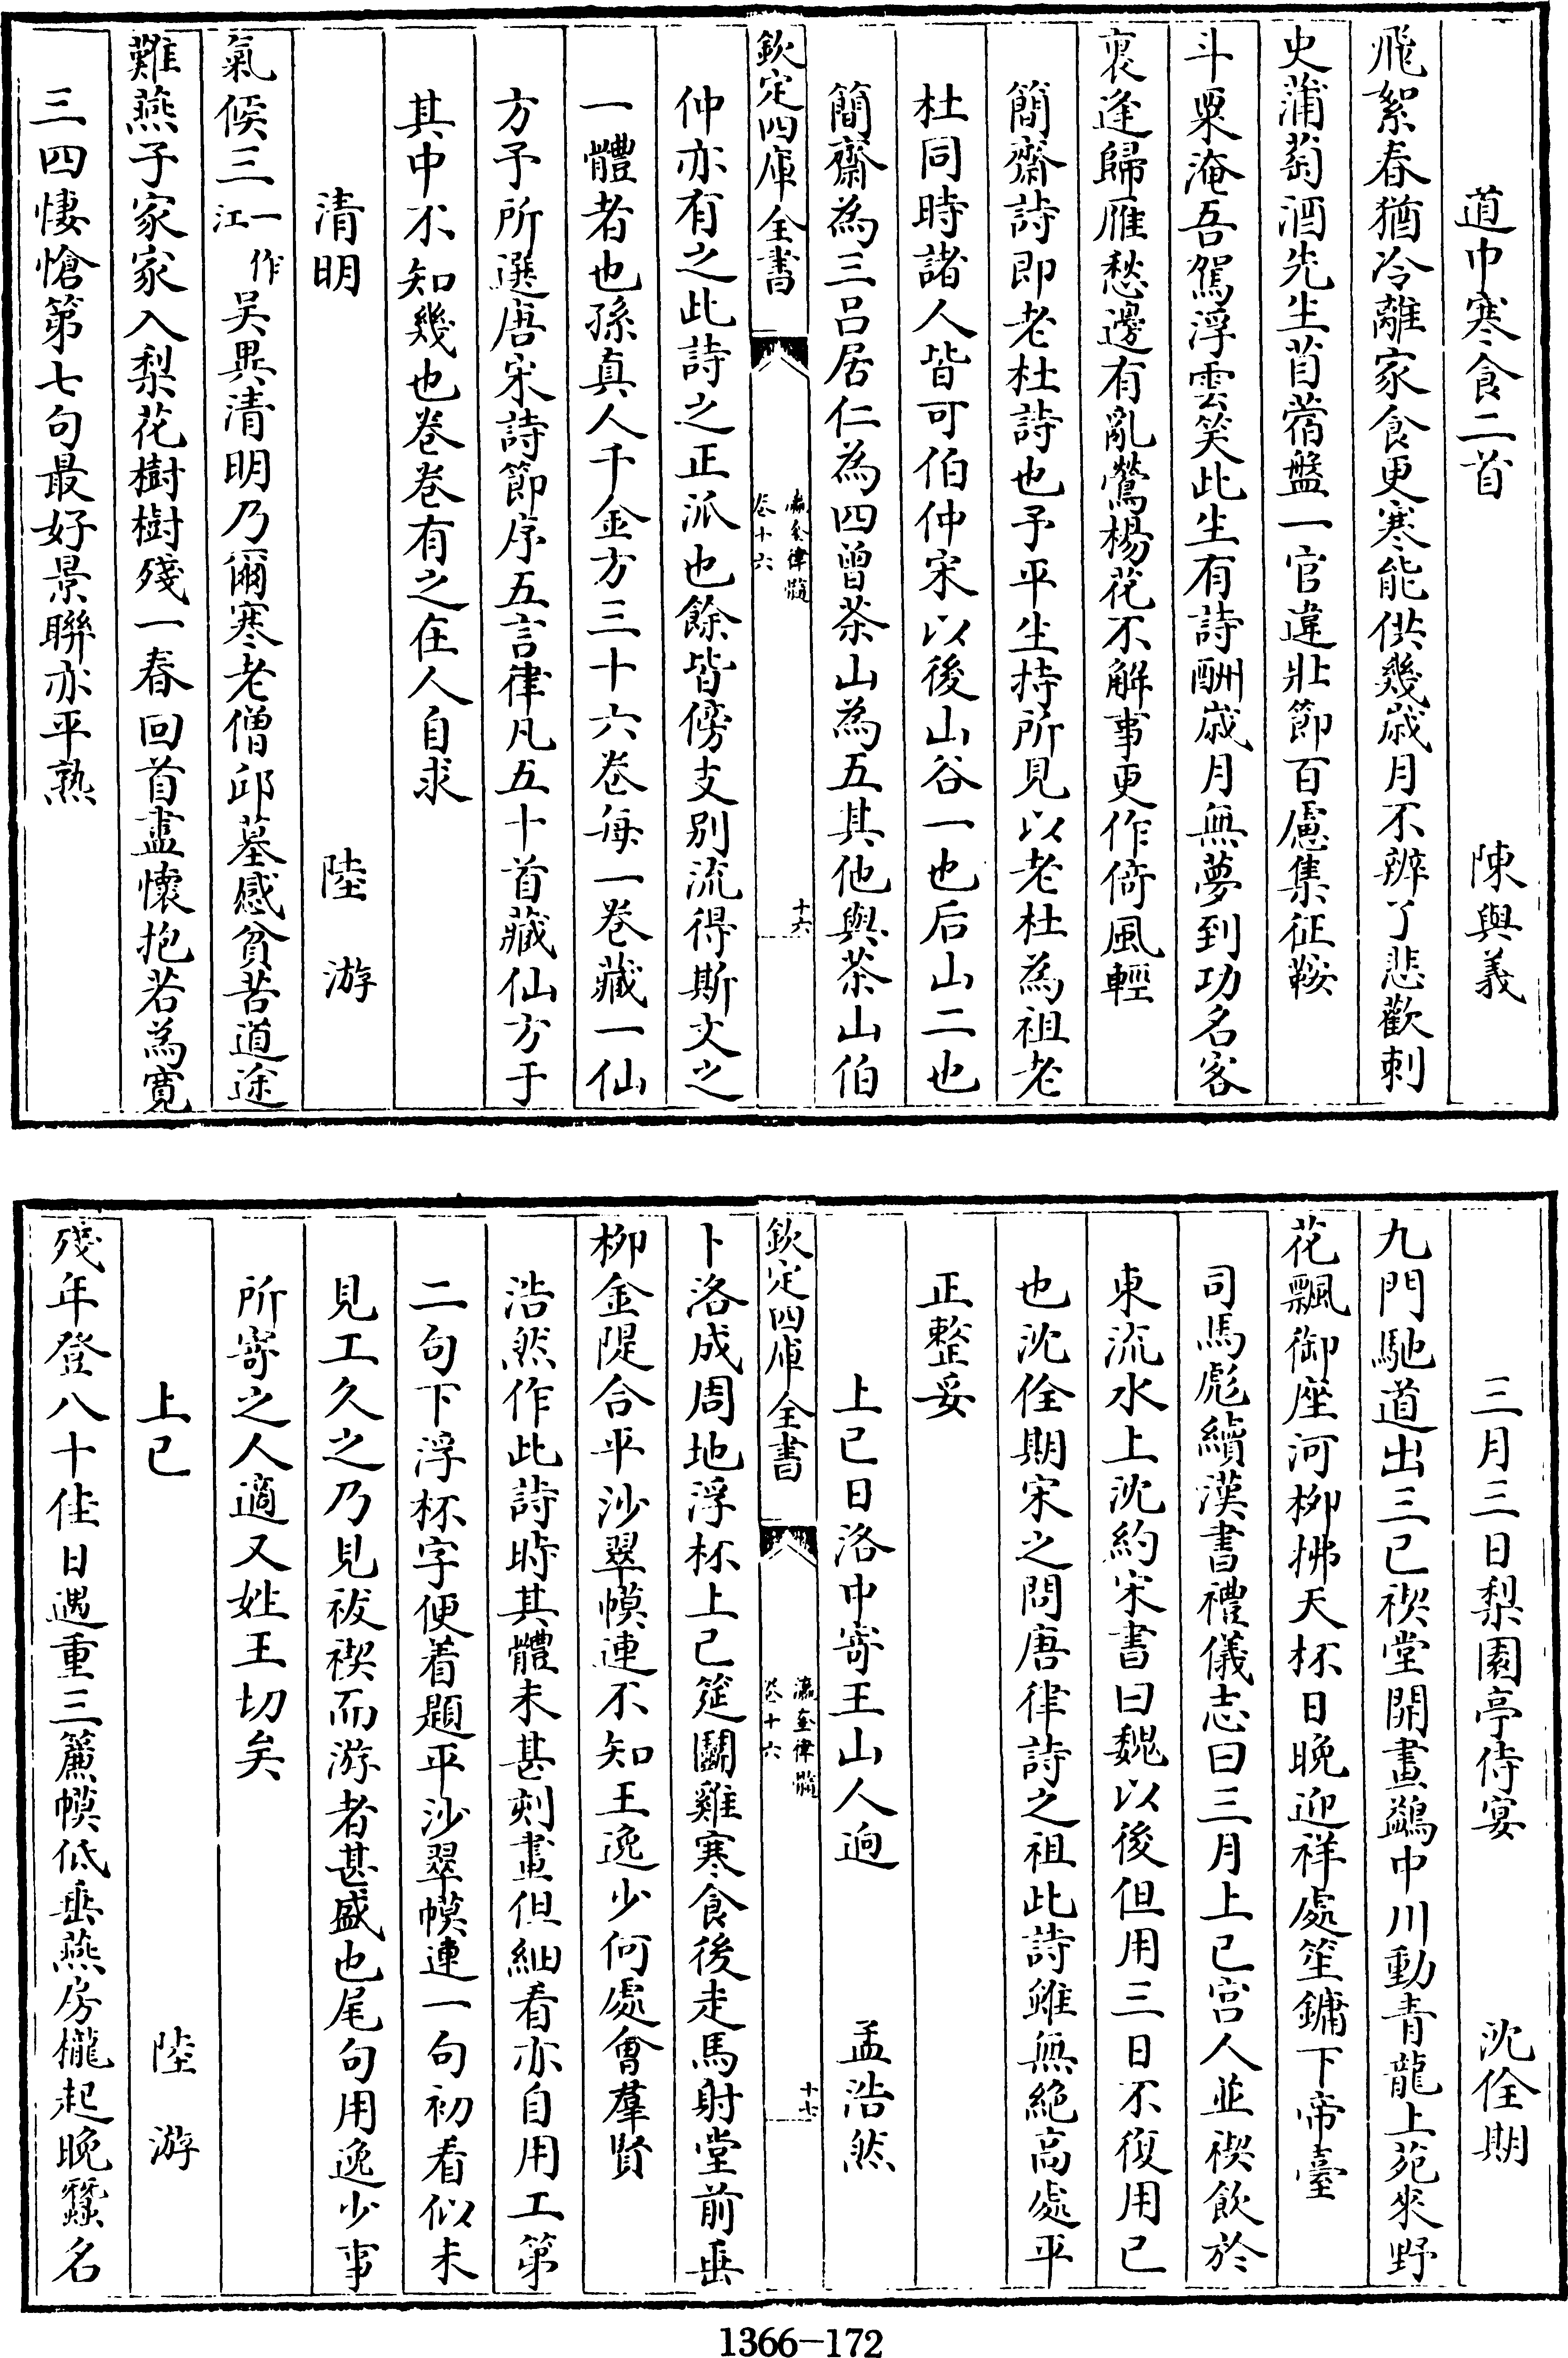 道中寒食二首 陳與義
飛絮春猶冷離家食更寒能供幾歲月不辨了悲歡刺
史蒲萄酒先生苜蓿盤一官違壯節百慮集征鞍
斗粟淹吾駕浮雲笑此生有詩酬歲月無夢到功名客
裏逢歸雁愁邊有亂鶯楊花不解事更作倚風輕
簡齋詩即老杜詩也予平生持所見以老杜為祖老
杜同時諸人皆可伯仲宋以後山谷一也后山二也
簡齋為三呂居仁為四曾茶山為五其他與茶山伯
欽定四庫全書 瀛奎律髓 卷十六 十六
仲亦有之此詩之正派也餘皆傍支别流得斯文之
一體者也孫真人千金方三十六卷每一卷藏一仙
方予所選唐宋詩節序五言律凡五十首藏仙方于
其中不知幾也卷卷有之在人自求
清明 陸游
氣候三一作江吳異清明乃爾寒老僧邱墓感貧苦道途
難燕子家家入梨花樹樹殘一春回首盡懷抱若為寬
三四悽愴第七句最好景聯亦平熟
三月三日梨園亭侍宴 沈佺期
九門馳道出三已禊堂開畫鷁中川動青龍上苑來野
花飄御座河柳拂天杯日晚迎祥處笙鏞下帝臺
司馬彪續漢書禮儀志曰三月上已宫人並禊飲於
東流水上沈約宋書曰魏以後但用三日不復用已
也沈佺期宋之問唐律詩之祖此詩雖無絶高處平
正整妥
上已日洛中寄王山人逈 孟浩然
欽定四庫全書 瀛奎律髓 卷十六 十七
卜洛成周地浮杯上已筵鬭雞寒食後走馬射堂前垂
柳金隄合平沙翠幙連不知王逸少何處會羣賢
浩然作此詩時其體未甚刻畫但細看亦自用工第
二句下浮杯字便着題平沙翠幙連一句初看似未
見工久之乃見祓禊而游者甚盛也尾句用逸少事
所寄之人適又姓王切矣
上已 陸游
殘年登八十佳日遇重三簾幙低垂燕房櫳起晚蠶名
1366-172